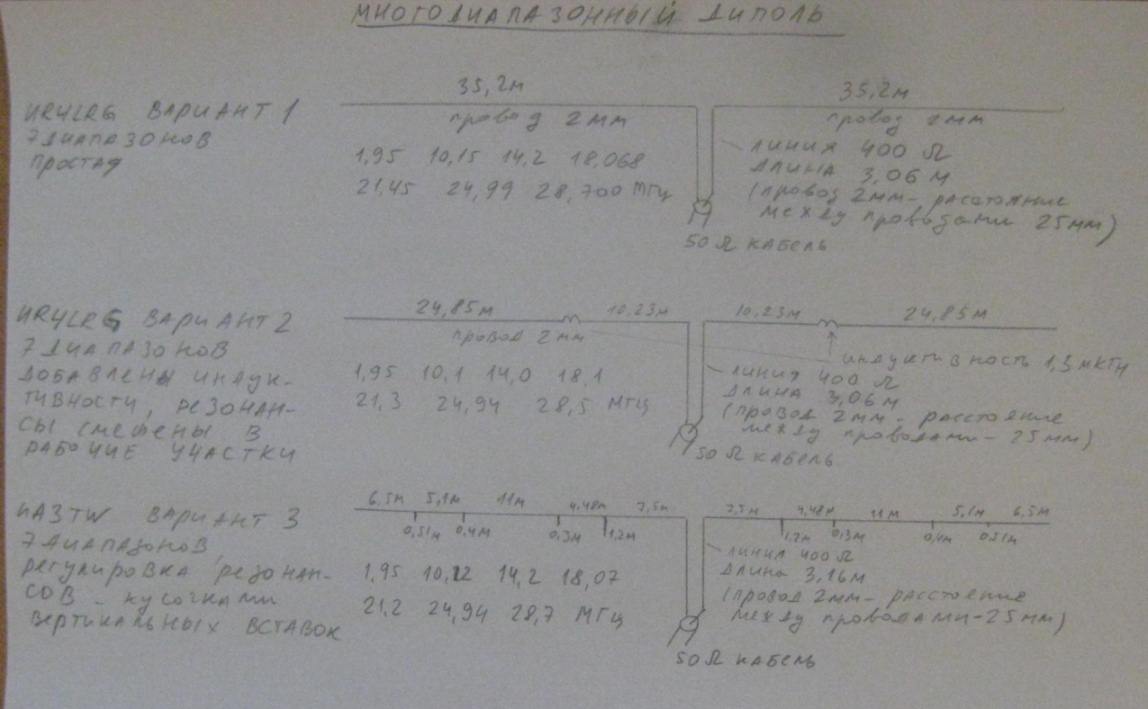 МНОГОДИАПАЗОННЫЙ ДИПОЛЬ
UR4LRG ВАРИАНТ 1
7 ДИАПАЗОНОВ
ПРОСТАЯ
35,2м 35,2м
провод 2мм провод 2мм
1,95 10,15 14,2 18,068
21,45 24,99 28,700 МГц
ЛИНИЯ 400 Ω
ДЛИНА 3,06 М
(провод 2мм - расстояние
между проводами 25мм)
50 Ω КАБЕЛЬ
UR4LRG ВАРИАНТ 2
7 ДИАПАЗОНОВ
ДОБАВЛЕНЫ ИНДУК-
ТИВНОСТИ, РЕЗОНАН-
СЫ СМЕЩЕНЫ В
РАБОЧИЕ УЧАСТКИ
24,85м 10,23м 10,23м 24,85м
провод 2мм
индуктивность 1,3 мкГн
1,95 10,1 14,0 18,1
21,3 24,94 28,5 МГц
ЛИНИЯ 400 Ω
ДЛИНА 3,06м
(провод 2мм - расстояние
между проводами - 25мм)
50 Ω КАБЕЛЬ
UA3TW ВАРИАНТ 3
7 ДИАПАЗОНОВ
регулировка резонан-
сов - кусочками
вертикальных вставок
6,5м 5,1м 11м 4,48м 7,5м 7,5м 4,48м 11м 5,1м 6,5м
0,51м 0,4м 0,3м 1,2м 1,2м 0,3м 0,4м 0,51м
1,95 10,12 14,2 18,07
21,2 24,94 28,7 МГц
ЛИНИЯ 400 Ω
ДЛИНА 3,16м
(провод 2мм - расстояние
между проводами - 25мм)
50 Ω КАБЕЛЬ